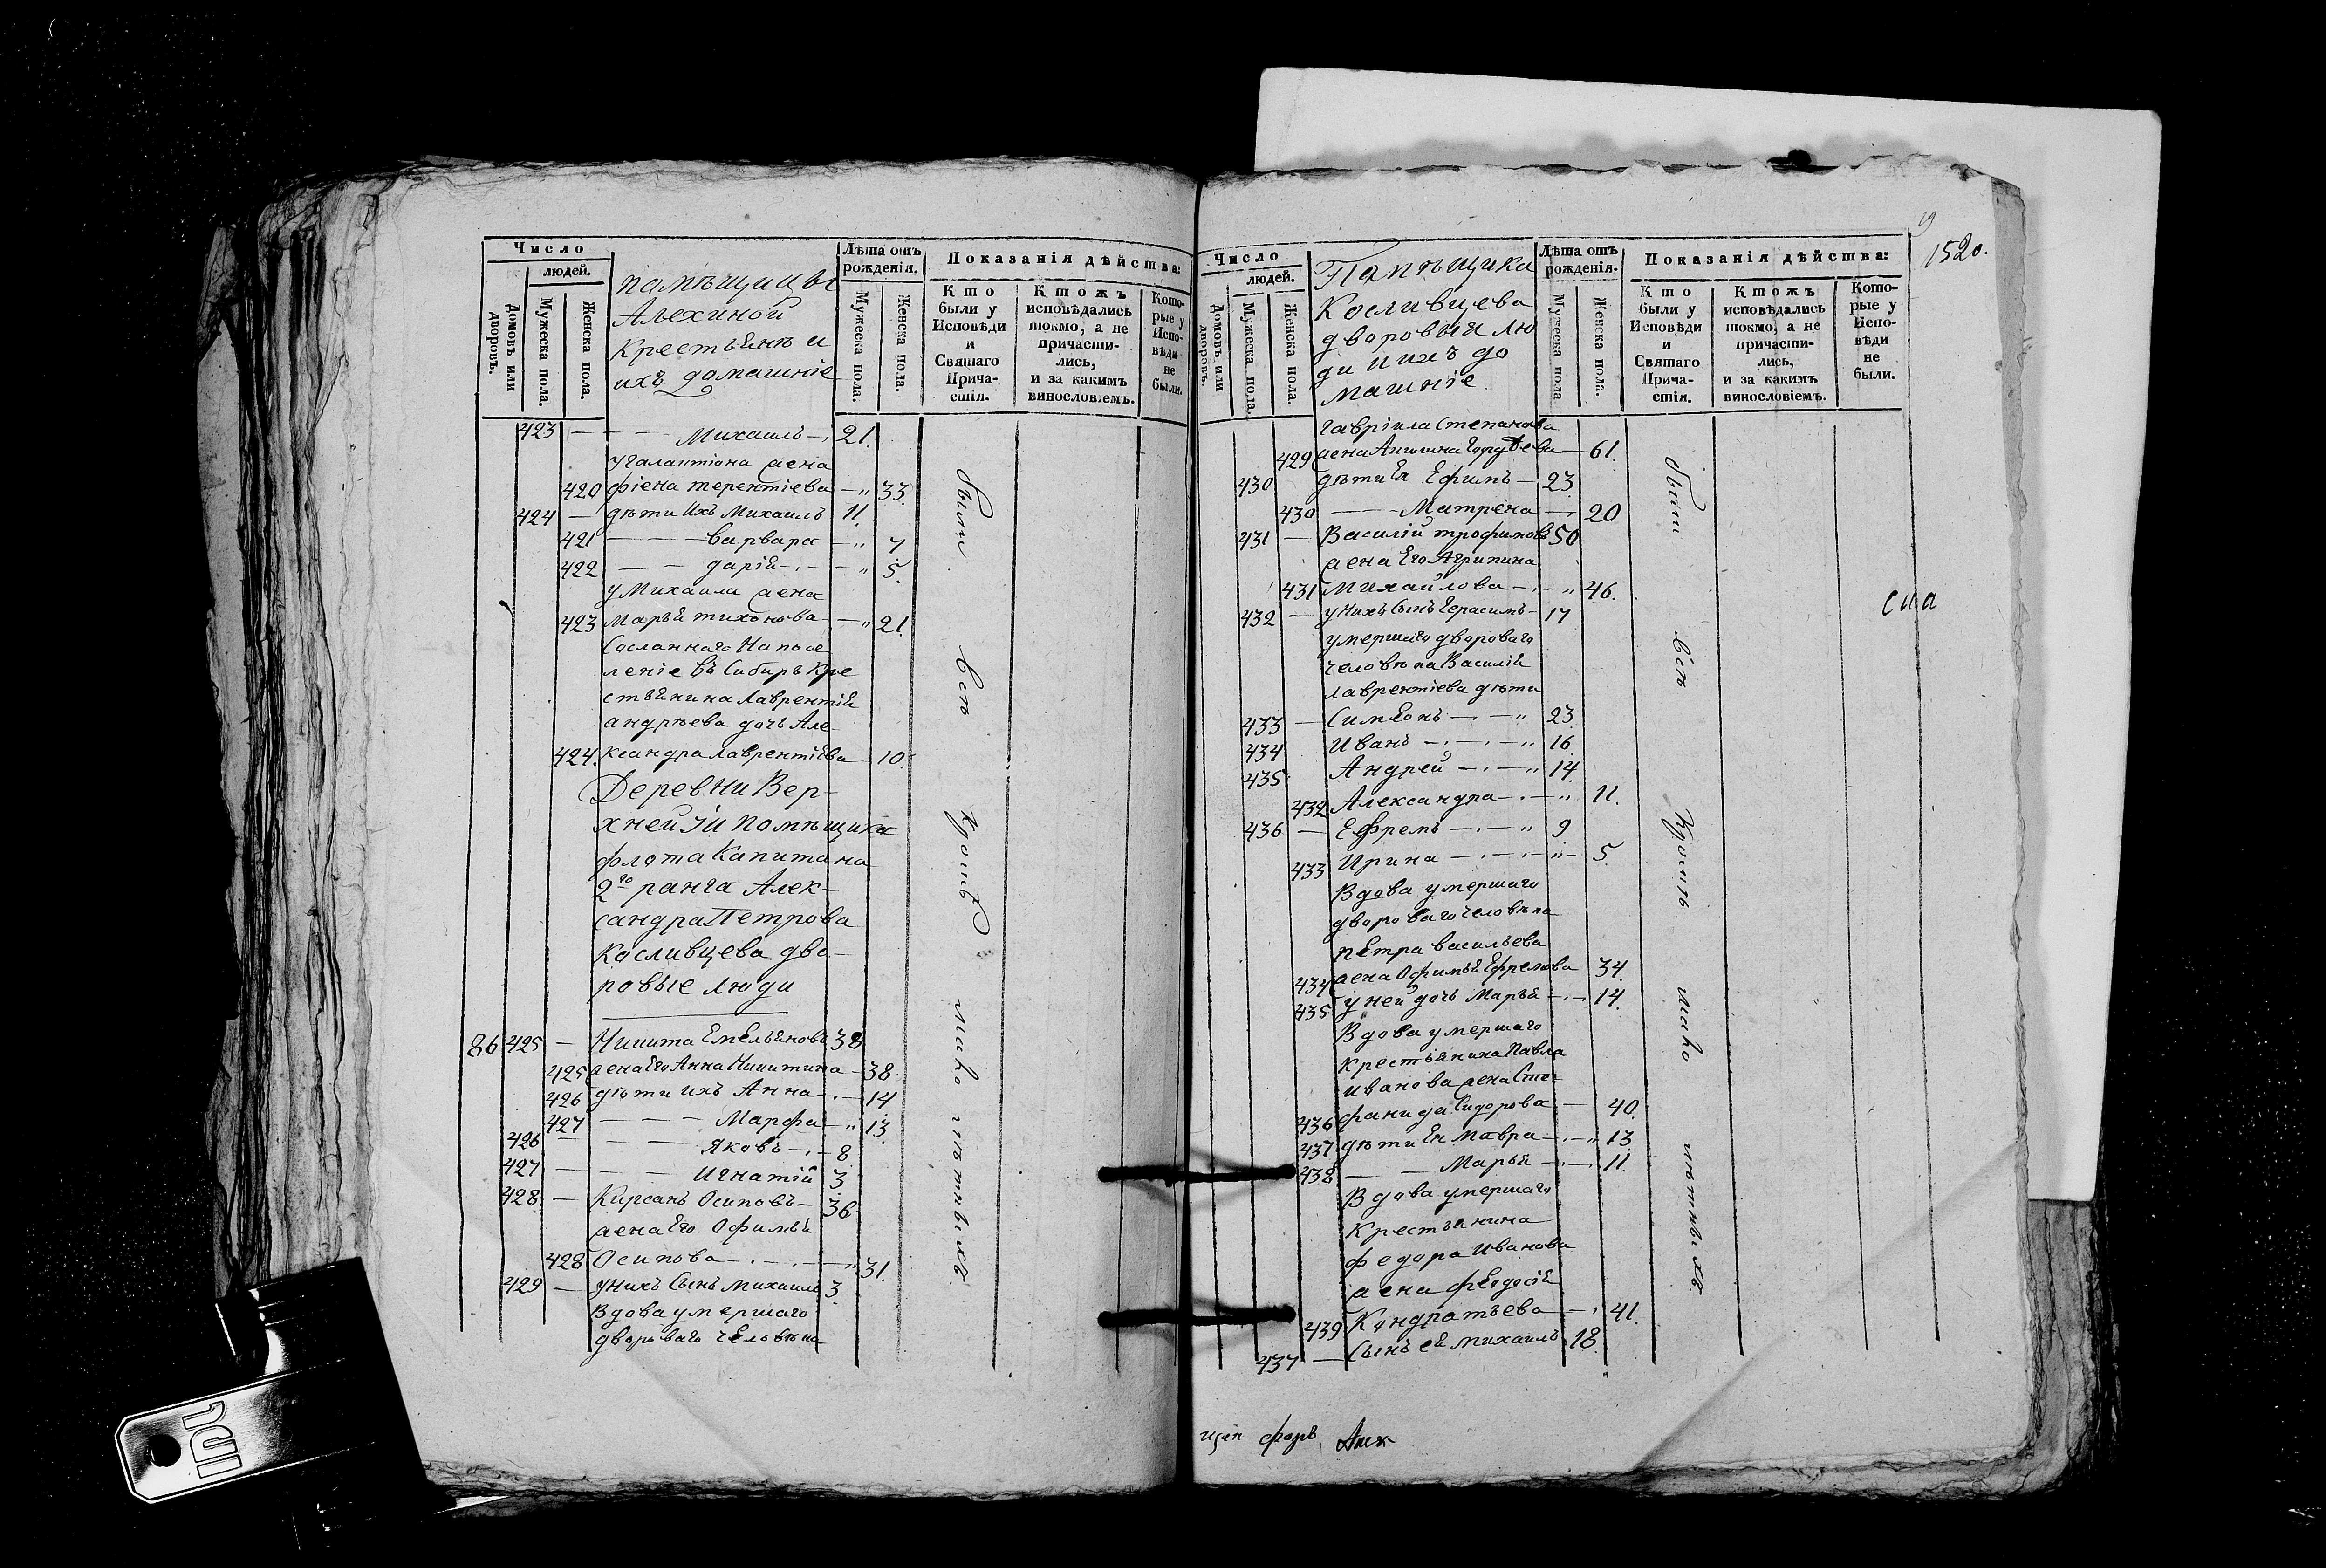 Число
людей.
Домовъ или дворовъ.
Мужеска пола.
Женска пола.
помѣщицы
Алехиной
Крестьянѣ и
ихъ домашніе
Лѣта отъ рожденія.
Мужеска пола.
Женска пола.
Показанія дѣйства:
Кто были у Исповѣди и Святаго Причастія.
Ктожъ исповѣдались токмо, а не причастились, и за каким винословіемъ.
Которые у Исповѣди не были.
423 — Михаилъ — 21.
у Галактіона жена
420 фіена терентіева — 33.
424 — дѣти Ихъ Михаилъ 11.
421 — варвара — 7
422 — дарія — 5.
у Михаила жена
423 Марья тихонова — 21.
Сосланнаго На посе
леніе въ Сибирь Кре
стьянина Лаврентія
андрѣева дочь Але-
424. ксандра Лаврентіева 10.
Деревни Вер-
хней помѣщика
флота Капитана
2го ранга Алек-
сандра Петрова
Косливцева дво-
ровые люди
86 425 — Никита Емельяновъ 38
425 жена Его Анна Никитина — 38.
426 дѣти ихъ Анна — 14
427 — Марфа — 13.
426 — Яковъ — 8
427 — Игнатій 3
428 — Кирсанъ Осиповъ — 36
жена Его Офимья
428 Осипова — 31.
429 — у нихъ Сынъ Михаилъ 3
Вдова умершаго
двороваго человѣка
были всѣ кромѣ мало лѣтныхъ
Число
людей.
Домовъ или дворовъ.
Мужеска пола.
Женска пола.
Помѣщика
Косливцева
дворовыя лю
ди и ихъ до
машніе.
Лѣта отъ рожденія.
Мужеска пола
Женска пола.
Показанія дѣйства:
Кто были у Исповѣди и Святаго Причастія.
Ктожъ исповѣдались токмо, а не причастились, и за каким винословіемъ.
Которые у Исповѣди не были.
1520.
гавріила Степанова
429 жена 61.
430 дѣти Ея Ефимъ — 23
430 — Матрена — 20
431 — Василій трофимовъ 50
жена Его Агрипина
431 Михайлова — 46.
432 — у Нихъ Сынъ Герасимъ — 17
умершаго двороваго
человѣка Василія
лаврентіева дѣти
433 — Симеонъ — 23
434 Иванъ — 16
435 Андрей — 14
432 Александра — 11.
436 — Ефремъ — 9
433 Ирина — 5.
Вдова умершаго
двороваго человѣка
петра васильева
434 жена Офимья Ефремова 34.
435 у ней дочь Марья — 14.
Вдова умершаго
крестьянина Павла
иванова жена Сте-
436 фанида Сидорова — 40.
437 дѣти Ея Мавра — 13
438 — Марья — 11.
Вдова умершаго
крестьянина
федора Иванова
жена феодосія
439 Кондратьева — 41.
437 — Сынъ ея Михаилъ 18.
были всѣ кромѣ мало лѣтныхъ